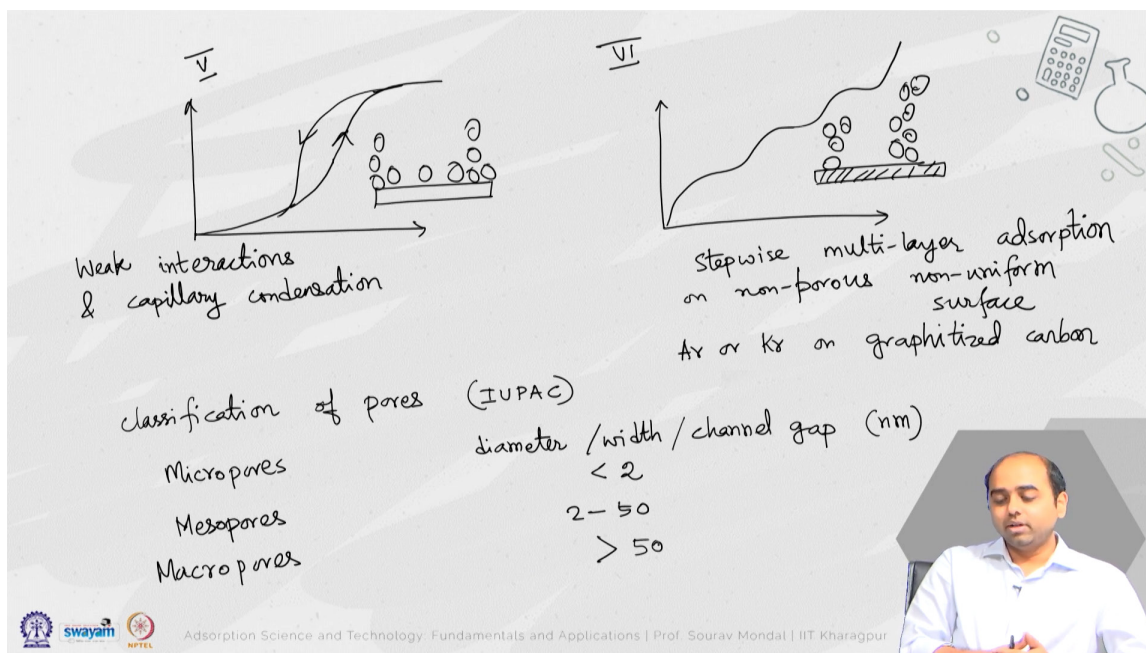 V
Weak interactions
& capillary condensation
VI
Stepwise multi-layer adsorption
on non-porous non-uniform
surface
Ar or Kr on graphitized carbon
classification of pores (IUPAC)
diameter /width/channel gap (nm)
Micropores < 2
Mesopores 2-50
Macropores > 50
swayam
NPTEL
Adsorption Science and Technology: Fundamentals and Applications | Prof. Sourav Mondal | IIT Kharagpur